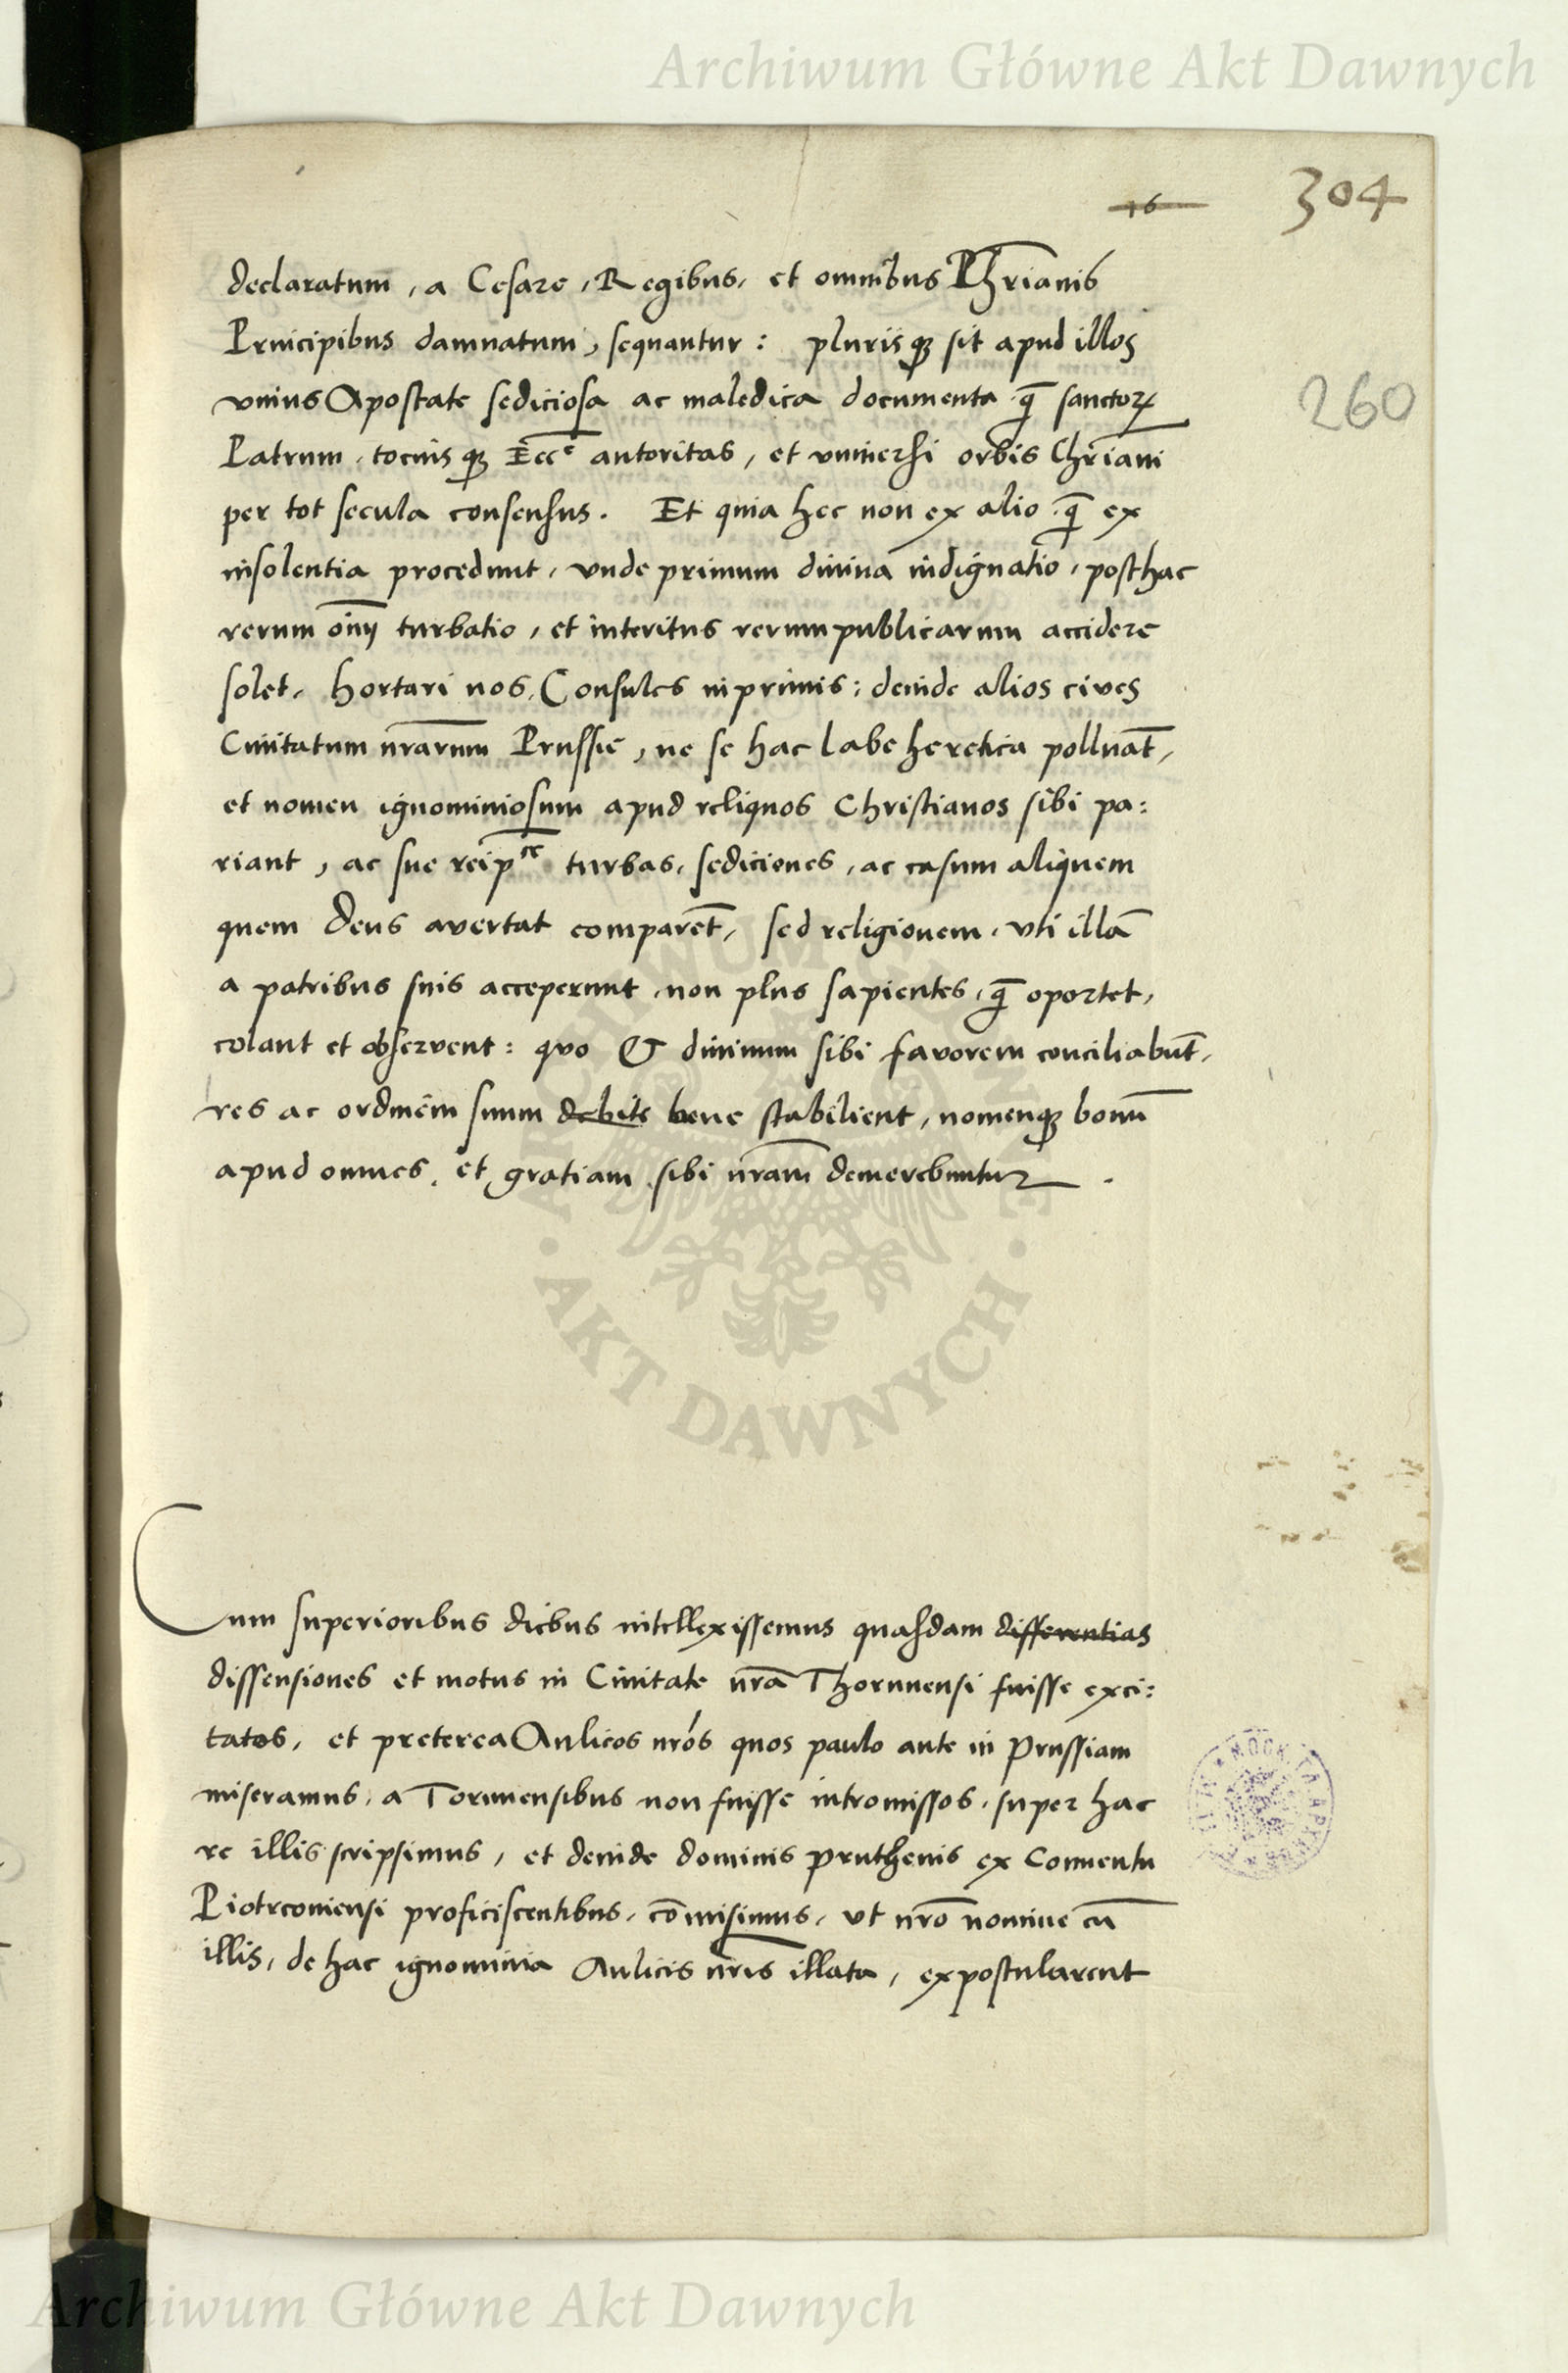 Archiwum Główne Akt Dawnych
16
304
declaratum, a Cesare, Regibus, et omnibus Chr̄ianis
Principibus damnatum, sequantur: plurisqꝫ sit apud illos
260
vnius Apostate sediciosa ac maledica documenta qꝫ̄ sanctoꝝ
Patrum, tociusqꝫ Ecc̄e autoritas, et vniuersi orbis Chr̄iani
per tot secula consensus. Et quia hec non ex alio q̄ ex
insolentia procedunt, vnde primum diuina indignatio, posthac
rerum oīm turbatio, et interitus rerumpublicarum accidere
solet, hortari nos, Consules inprimis: deinde alios ciues
Ciuitatum nr̄arum Prussie, ne se hac labe heretica polluāt,
et nomen ignominiosum apud reliquos Christianos sibi pa:
riant, ac sue reip̄ce turbas, sediciones, ac casum aliquem
quem Deus avertat comparēt, sed religionem, vti illā
a patribus suis acceperunt, non plus sapientes, q̄ oportet,
colant et observent: quo & diuinum sibi favorem conciliabūt,
res ac ordinem suum debite bene stabilient, nomenqꝫ bonū
apud omnes, et gratiam sibi nr̄am demerebuntur.
ARCHIWUM GŁÓWNE
AKT DAWNYCH
Cum superioribus diebus intellexissemus quasdam differentias
dissensiones et motus in Ciuitate nr̄a Thorunensi fuisse exci:
tatos, et preterea Aulicos nr̄os quos paulo ante in Prussiam
miseramus, a Torunensibus non fuisse intromissos, super hac
re illis scripsimus, et deinde dominis pruthenis ex Conuentu
Piotrcouiensi proficiscentibus, cōmisimus, vt nr̄o nomine cū
illis, de hac ignominia Aulicis nr̄is illata, expostularent
Archiwum Główne Akt Dawnych